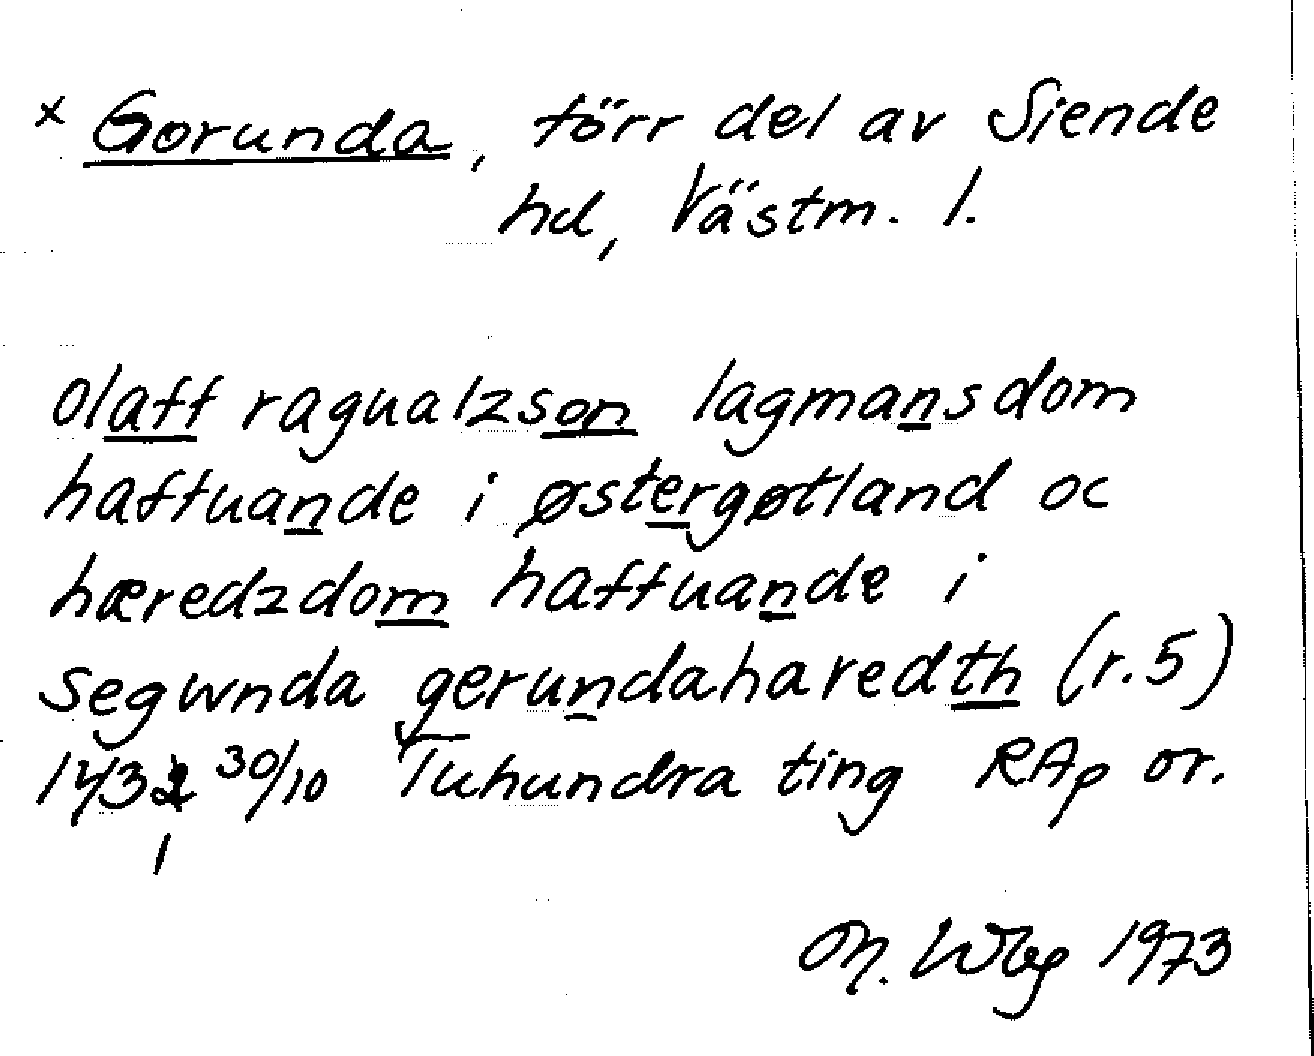 × Gorunda, förr del av Siende
hd, Västm. l.
olaff ragualzson lagmansdom
haffuande i østergøtland oc
hæredzdom haffuande i
segwnda gerundaharedth (r.5)
1432 30/10 Tuhundra ting RAp or.
1
M. Wbg 1973